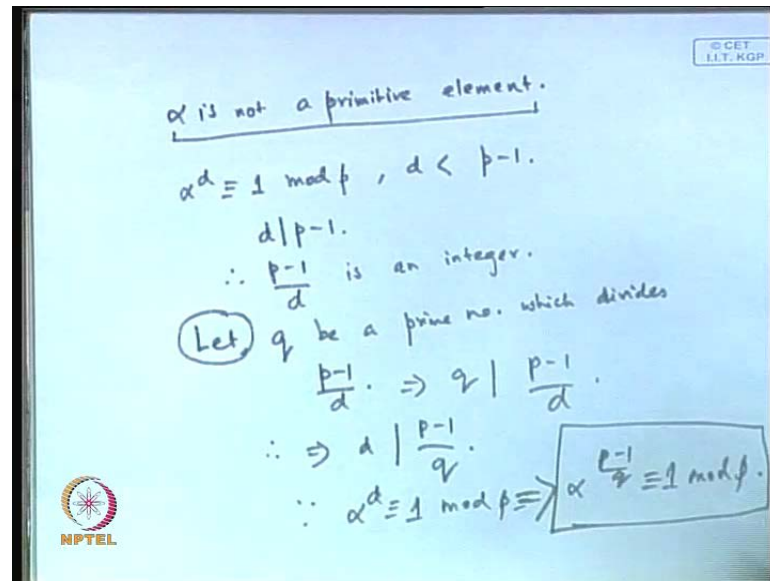 © CET
I.I.T. KGP
α is not a primitive element.
α^d ≡ 1 mod p , d < p-1.
d | p-1.
∴ (p-1)/d is an integer.
Let q be a prime no. which divides
(p-1)/d . ⇒ q | (p-1)/d .
∴ ⇒ d | (p-1)/q .
∵ α^d ≡ 1 mod p ⇒ α^((p-1)/q) ≡ 1 mod p.
NPTEL